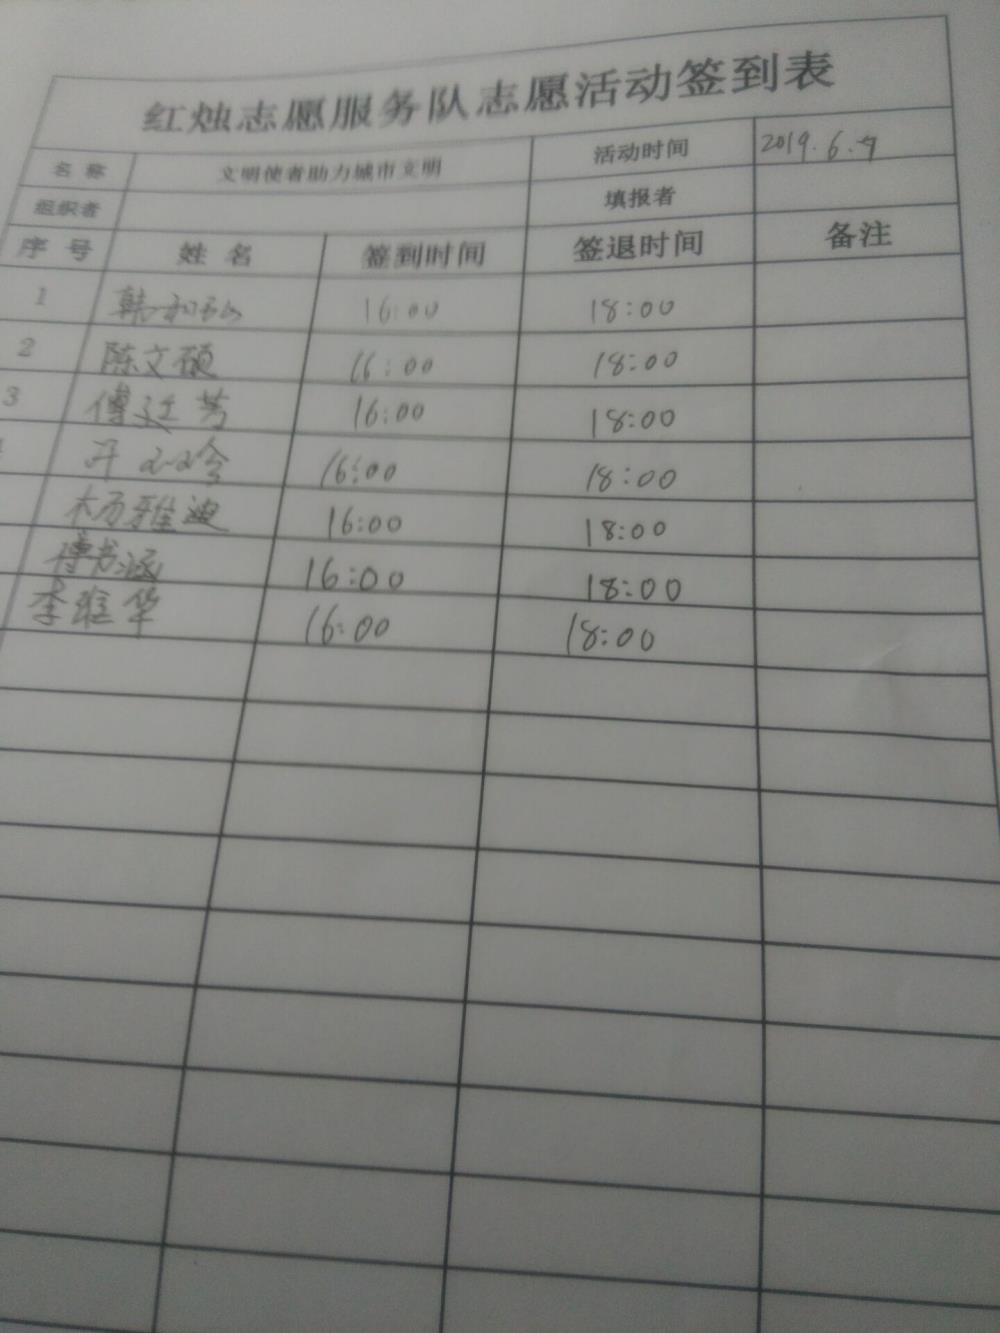 红烛志愿服务队志愿活动签到表
名称 文明使者助力城市文明 活动时间 2019.6.9
组织者 填报者
序号 姓名 签到时间 签退时间 备注
1 韩 16:00 18:00
2 陈文硕 16:00 18:00
3 傅廷芳 16:00 18:00
16:00 18:00
杨雅迪 16:00 18:00
傅书涵 16:00 18:00
李维华 16:00 18:00